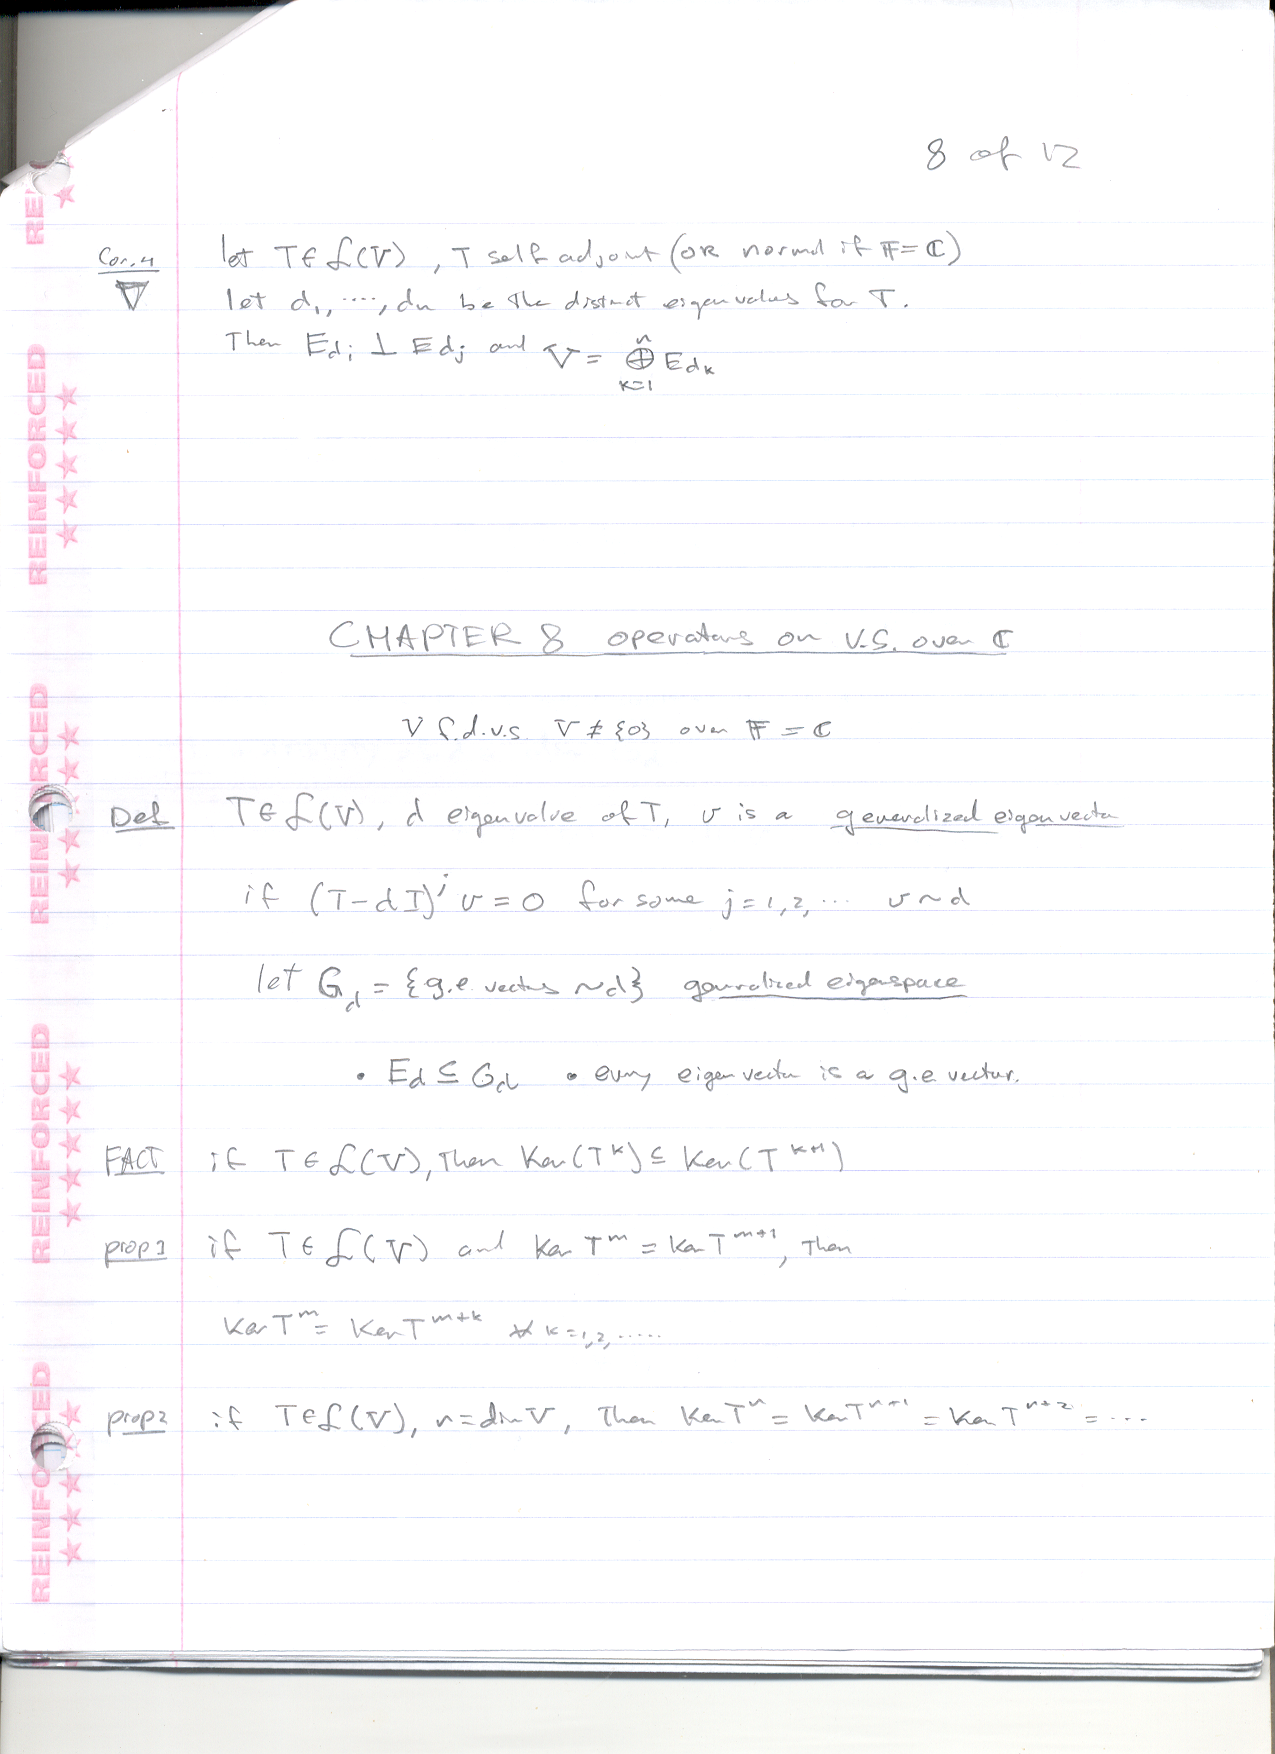 8 of 12
Cor. 4 let T ∈ ℒ(V), T self adjoint (OR normal if 𝔽 = ℂ)
∇ let d₁, ...., dₙ be the distinct eigenvalues for T.
Then E_{dᵢ} ⊥ E_{dⱼ} and V = ⊕_{k=1}^{n} E_{dₖ}
CHAPTER 8 operators on V.S. over ℂ
V f.d.v.s. V ≠ {0} over 𝔽 = ℂ
Def T ∈ ℒ(V), d eigenvalue of T, v is a generalized eigenvector
if (T - dI)^j v = 0 for some j = 1, 2, ... v ~ d
let G_d = {g.e. vectors ~d} generalized eigenspace
• E_d ⊆ G_d • every eigenvector is a g.e. vector.
FACT if T ∈ ℒ(V), Then Ker(T^k) ⊆ Ker(T^{k+1})
prop 1 if T ∈ ℒ(V) and Ker T^m = Ker T^{m+1}, Then
Ker T^m = Ker T^{m+k} ∀ k = 1, 2, .....
prop 2 if T ∈ ℒ(V), n = dim V, Then Ker T^n = Ker T^{n+1} = Ker T^{n+2} = ...
REINFORCED
REINFORCED
REINFORCED
REINFORCED